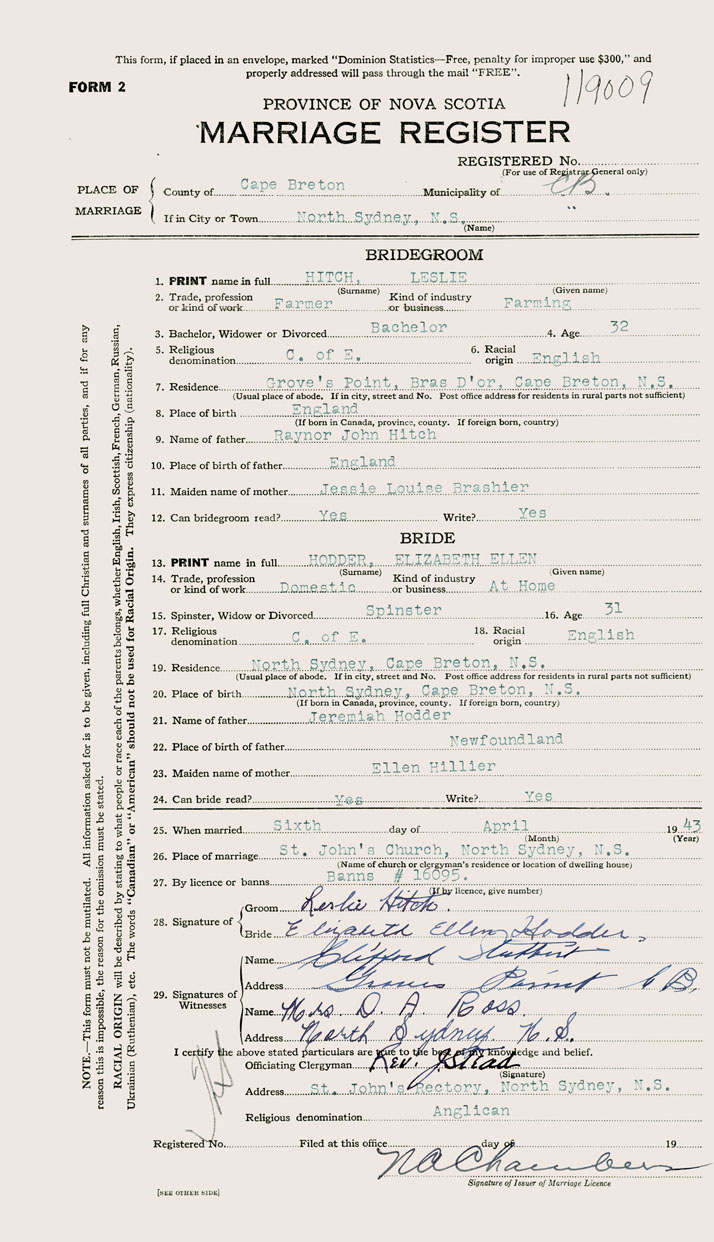 This form, if placed in an envelope, marked "Dominion Statistics—Free, penalty for improper use $300," and
properly addressed will pass through the mail "FREE".
FORM 2
119009
PROVINCE OF NOVA SCOTIA
MARRIAGE REGISTER
REGISTERED No.
(For use of Registrar General only)
PLACE OF MARRIAGE
County of Cape Breton Municipality of CB.
If in City or Town North Sydney, N.S. "
(Name)
BRIDEGROOM
1. PRINT name in full HITCH, LESLIE
(Surname) (Given name)
2. Trade, profession or kind of work Farmer Kind of industry or business Farming
3. Bachelor, Widower or Divorced Bachelor 4. Age 32
5. Religious denomination C. of E. 6. Racial origin English
7. Residence Grove's Point, Bras D'or, Cape Breton, N.S.
(Usual place of abode. If in city, street and No. Post office address for residents in rural parts not sufficient)
8. Place of birth England
(If born in Canada, province, county. If foreign born, country)
9. Name of father Raynor John Hitch
10. Place of birth of father England
11. Maiden name of mother Jessie Louise Brashier
12. Can bridegroom read? Yes Write? Yes
BRIDE
13. PRINT name in full HODDER, ELIZABETH ELLEN
(Surname) (Given name)
14. Trade, profession or kind of work Domestic Kind of industry or business At Home
15. Spinster, Widow or Divorced Spinster 16. Age 31
17. Religious denomination C. of E. 18. Racial origin English
19. Residence North Sydney, Cape Breton, N.S.
(Usual place of abode. If in city, street and No. Post office address for residents in rural parts not sufficient)
20. Place of birth North Sydney, Cape Breton, N.S.
(If born in Canada, province, county. If foreign born, country)
21. Name of father Jeremiah Hodder
22. Place of birth of father Newfoundland
23. Maiden name of mother Ellen Hillier
24. Can bride read? Yes Write? Yes
25. When married Sixth day of April 1943
(Month) (Year)
26. Place of marriage St. John's Church, North Sydney, N.S.
(Name of church or clergyman's residence or location of dwelling house)
27. By licence or banns Banns # 16095.
(If by licence, give number)
28. Signature of
Groom Leslie Hitch.
Bride Elizabeth Ellen Hodder.
29. Signatures of Witnesses
Name Clifford
Address Groves Point C B.
Name Mrs. D. A. Ross.
Address North Sydney N. S.
I certify the above stated particulars are true to the best of my knowledge and belief.
Officiating Clergyman Rev.
(Signature)
Address St. John's Rectory, North Sydney, N.S.
Religious denomination Anglican
Registered No. Filed at this office day of 19
N A Chambers
Signature of Issuer of Marriage Licence
[SEE OTHER SIDE]
NOTE.—This form must not be mutilated. All information asked for is to be given, including full Christian and surnames of all parties, and if for any
reason this is impossible, the reason for the omission must be stated.
RACIAL ORIGIN will be described by stating to what people or race each of the parents belongs, whether English, Irish, Scottish, French, German, Russian,
Ukrainian (Ruthenian), etc. The words "Canadian" or "American" should not be used for Racial Origin. They express citizenship (nationality).